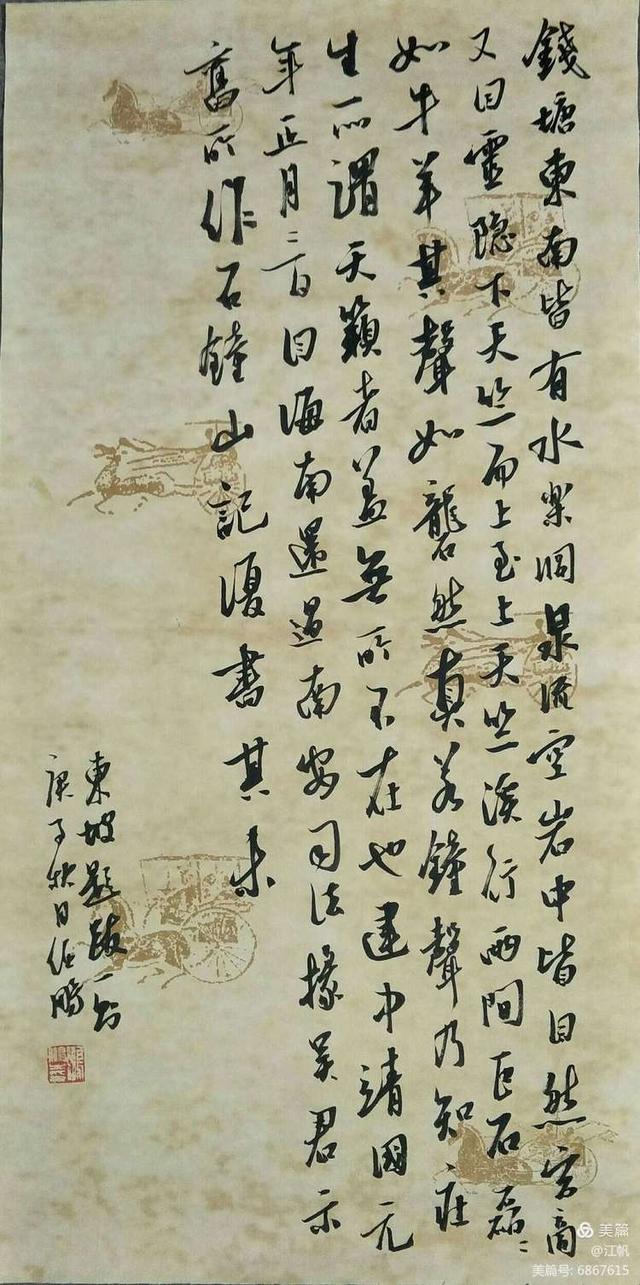 錢塘東南皆有水樂洞泉流空岩中皆自然宮商
又自靈隱下天竺而上至上天竺溪行兩間巨石磊〻
如牛羊其聲如礱然真若鐘聲乃知莊
生所謂天籟者盖無所不在也建中靖國元
年正月〻百自海南還過南安司法掾吳君示
舊所作石鐘山記復書其末
東坡題跋一則
庚子秋日任鵬
美篇
@江帆
美篇号: 6867615